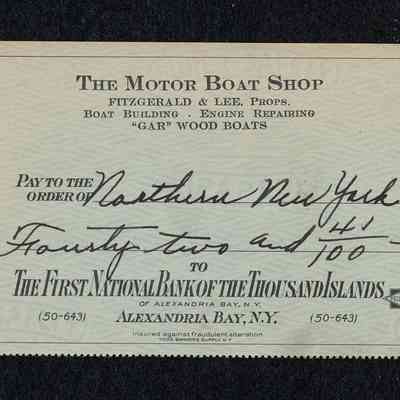 THE MOTOR BOAT SHOP
FITZGERALD & LEE, PROPS.
BOAT BUILDING . ENGINE REPAIRING
"GAR" WOOD BOATS
PAY TO THE
ORDER OF Northern New York
Fourty two and 41/100
TO
THE FIRST NATIONAL BANK OF THE THOUSAND ISLANDS
OF ALEXANDRIA BAY, N.Y.
(50-643) ALEXANDRIA BAY, N.Y. (50-643)
Insured against fraudulent alteration